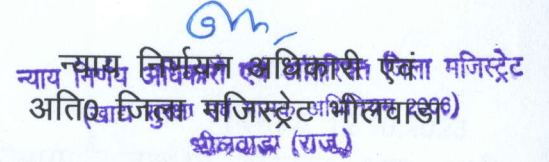 न्याय निर्णयन अधिकारी एवं
अति0 जिला मजिस्ट्रेट भीलवाडा
न्याय निर्णय अधिकारी एवं अतिरिक्त जिला मजिस्ट्रेट
(खाद्य सुरक्षा एवं मानक अधिनियम 2006)
भीलवाड़ा (राज.)